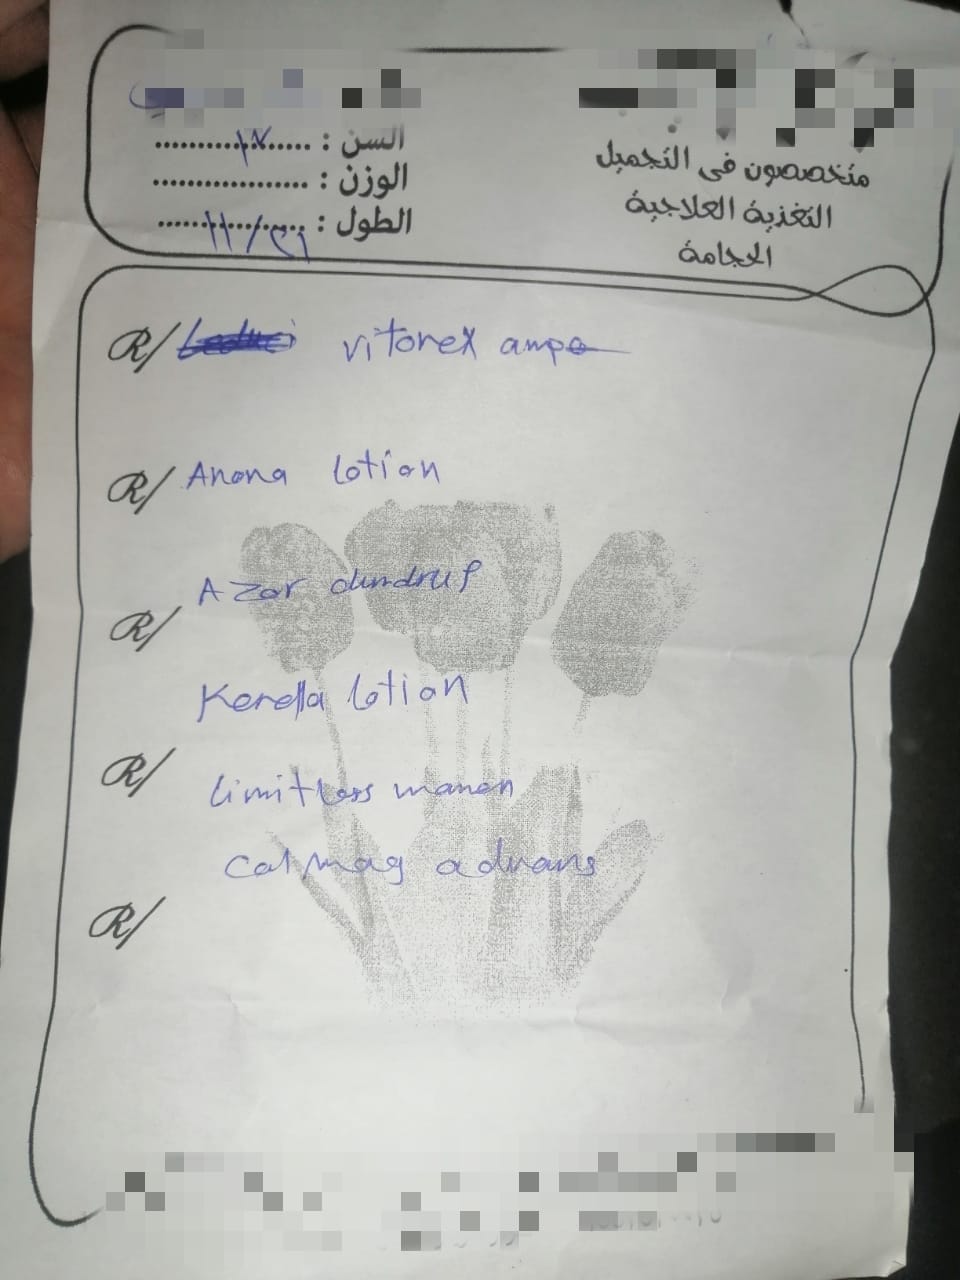 متخصصون فى التجميل
التغذية العلاجية
الحجامة
السن : ..................
الوزن : ..................
الطول : ..................
١١/٢١
R/ vitorex amp
R/ Anona lotion
Azar dundruf
R/
Kerella lotion
R/
limitless manen
Calmag advans
R/